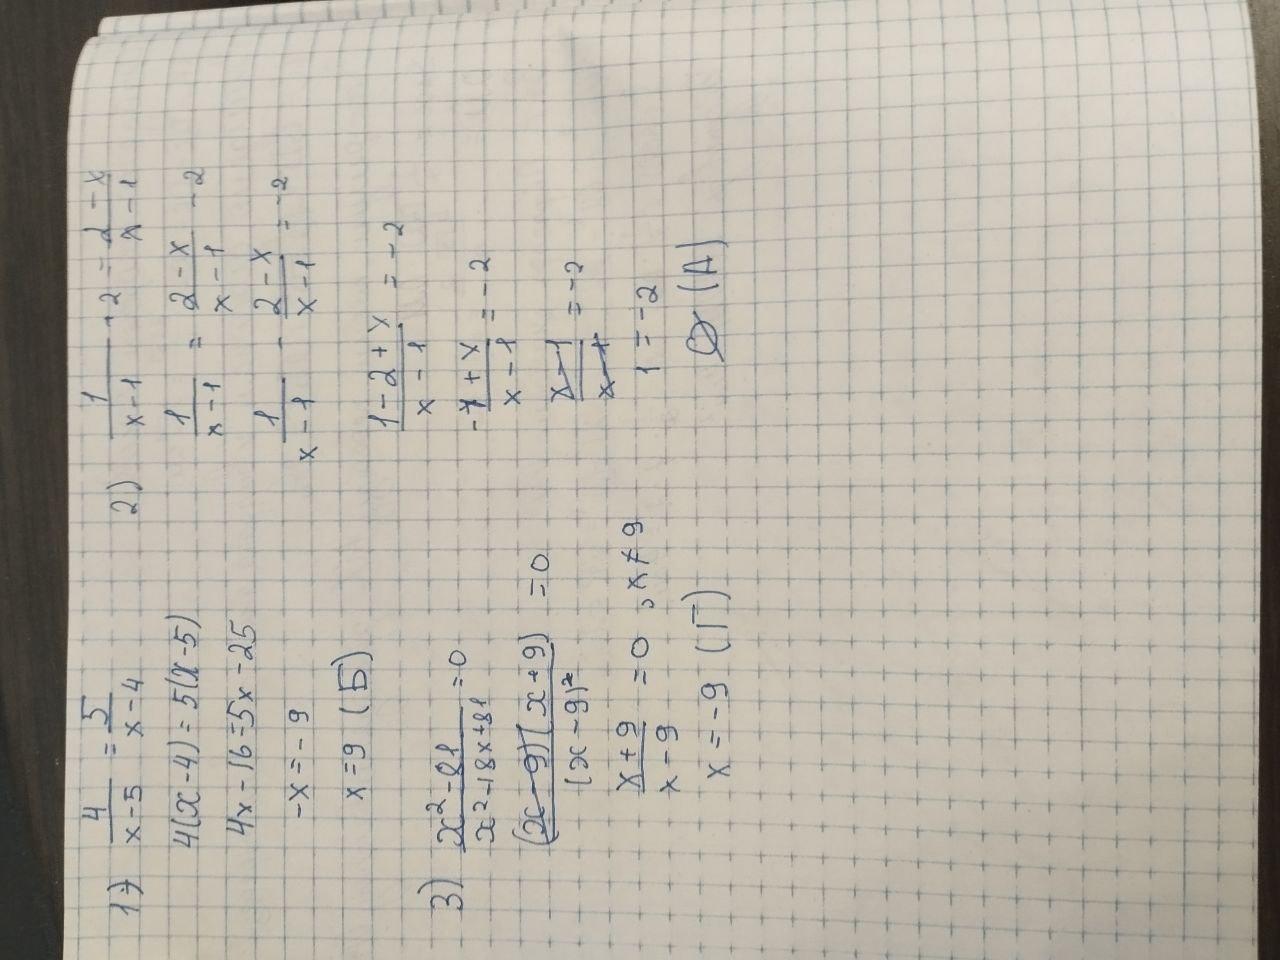 1) 4/(x-5) = 5/(x-4)
4(x-4) = 5(x-5)
4x-16=5x-25
-x=-9
x=9 (Б)
2) 1/(x-1) +2 = (2-x)/(x-1)
1/(x-1) = (2-x)/(x-1) -2
1/(x-1) - (2-x)/(x-1) = -2
(1-2+x)/(x-1) = -2
(-1+x)/(x-1) = -2
(x-1)/(x-1) = -2
1 = -2
∅ (А)
3) (x²-81)/(x²-18x+81) =0
(x-9)(x+9)/(x-9)² =0
(x+9)/(x-9) =0, x≠9
x=-9 (Г)